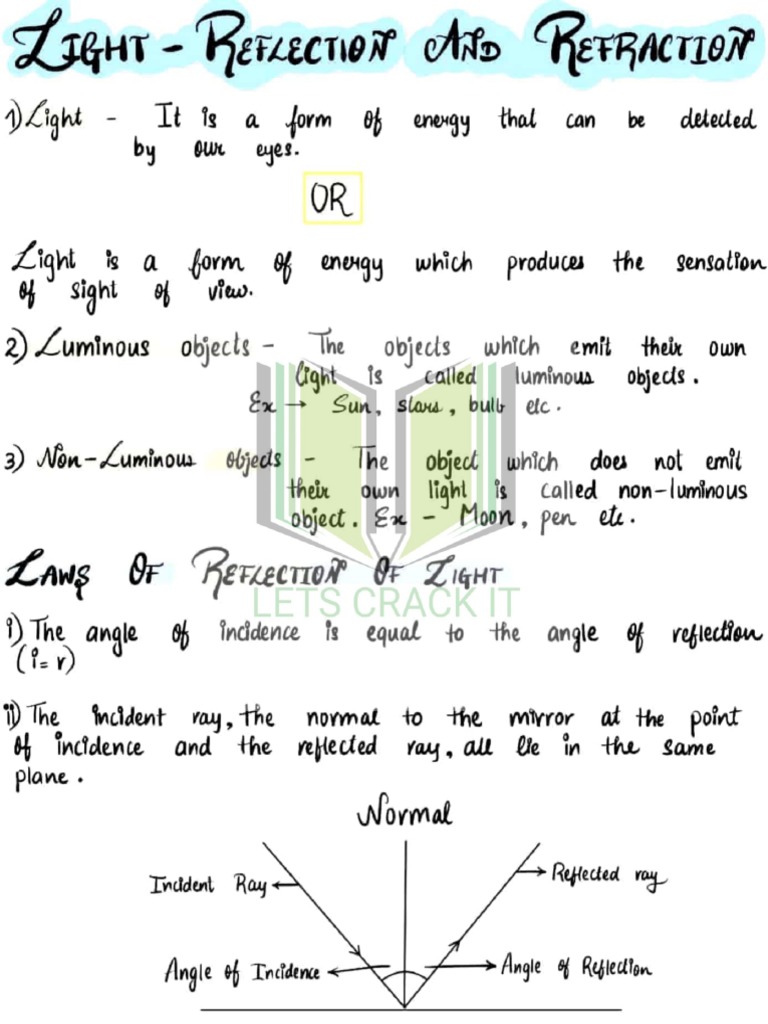 LIGHT - REFLECTION AND REFRACTION
1) Light - It is a form of energy that can be detected
by our eyes.
OR
Light is a form of energy which produces the sensation
of sight of view.
2) Luminous objects - The objects which emit their own
light is called luminous objects.
Ex → Sun, stars, bulb etc.
3) Non-Luminous objects - The object which does not emit
their own light is called non-luminous
object. Ex - Moon, pen etc.
LAWS OF REFLECTION OF LIGHT
LETS CRACK IT
i) The angle of incidence is equal to the angle of reflection
(i= r)
ii) The incident ray, the normal to the mirror at the point
of incidence and the reflected ray, all lie in the same
plane.
Normal
Incident Ray
Reflected ray
Angle of Incidence
Angle of Reflection